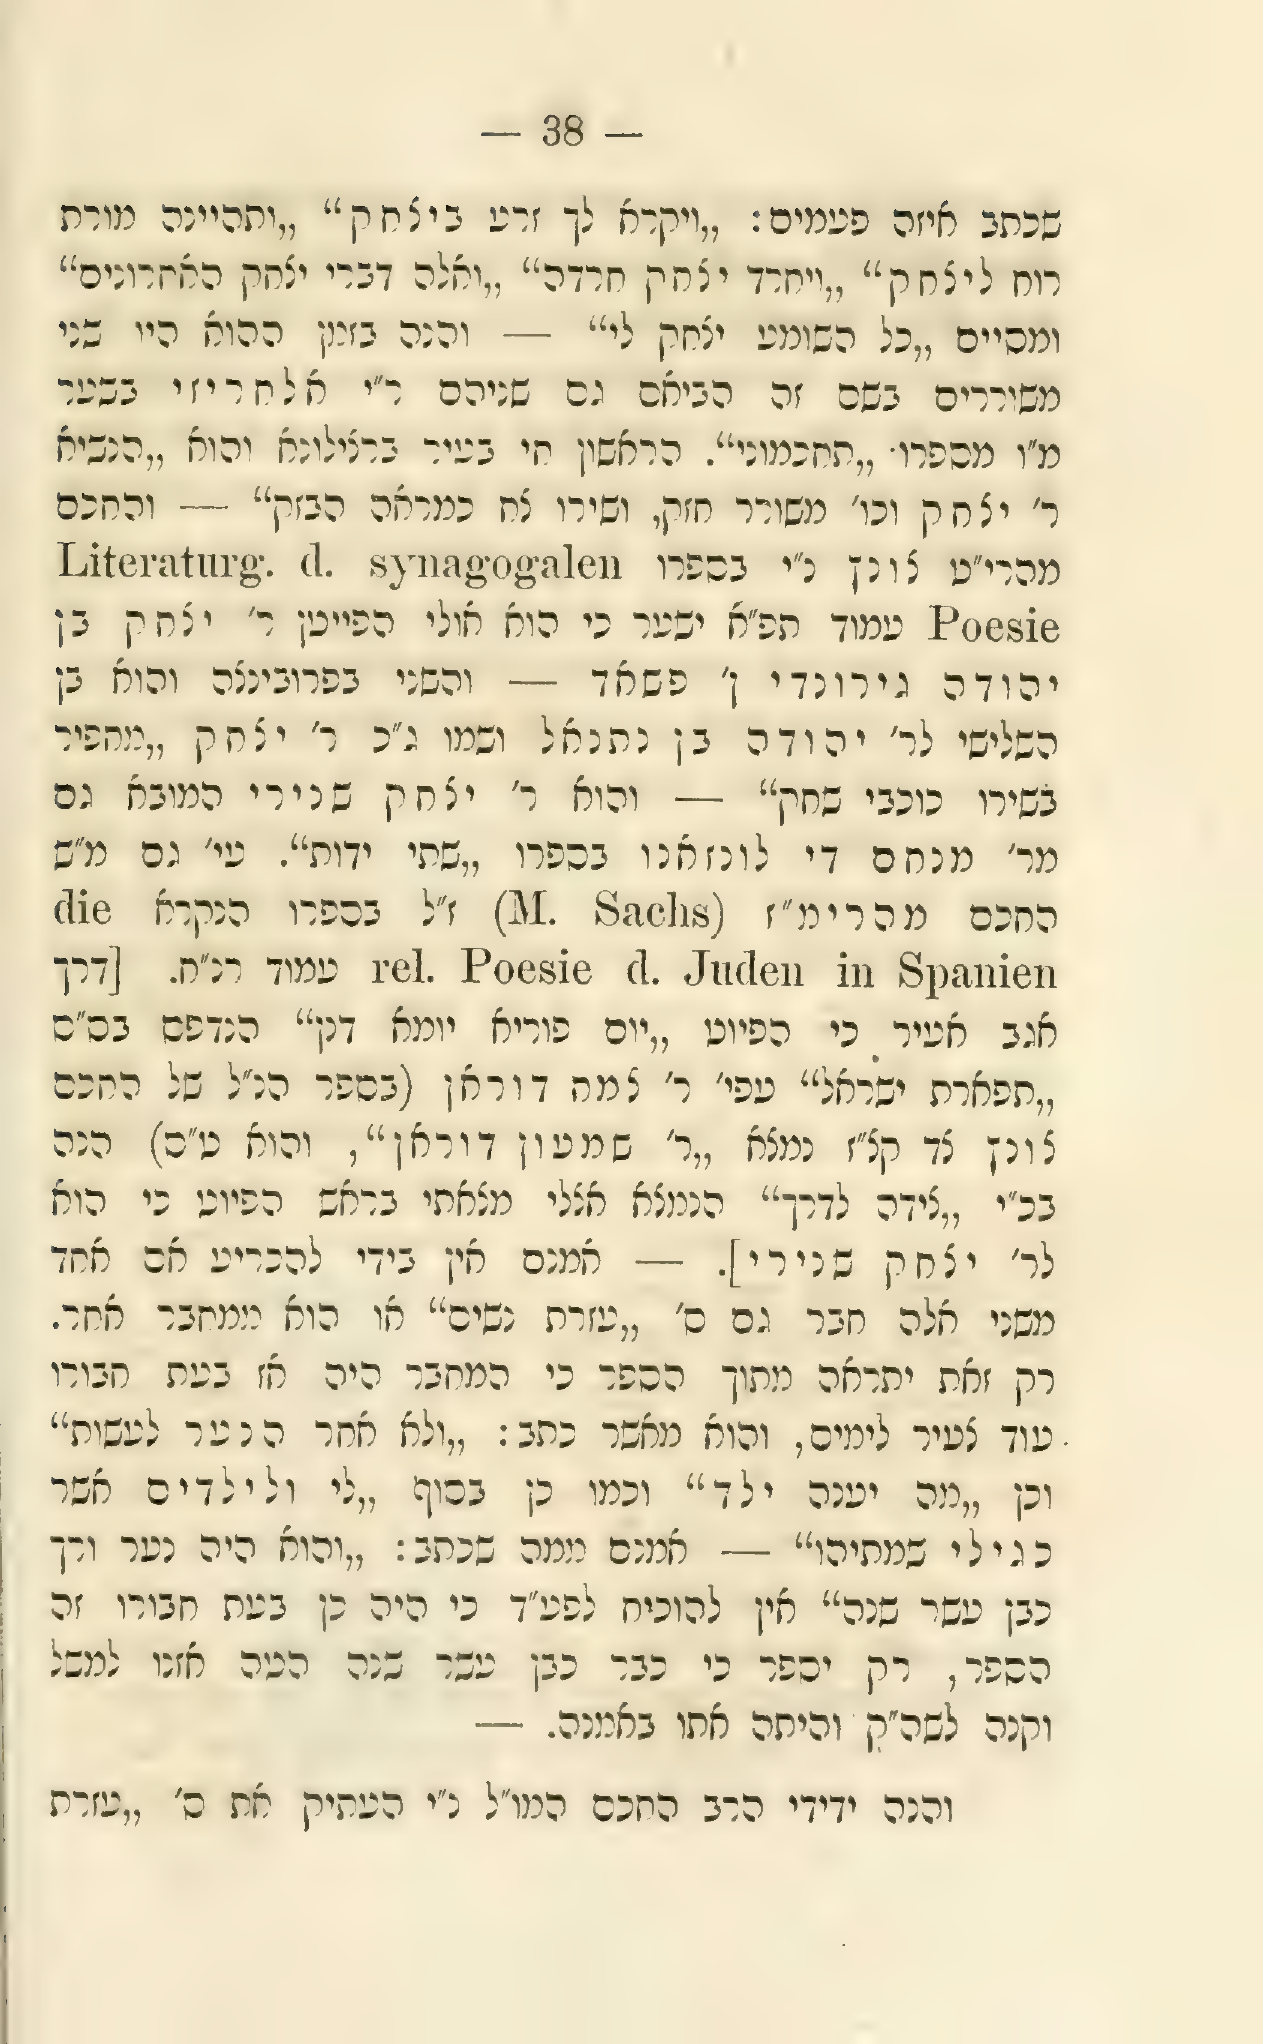 — 38 —
שכתב איזה פעמים: „ויקרא לך זרע ביצחק“ „ותהיינה מורת
רוח ליצחק“ „ויחרד יצחק חרדה“ „ואלה דברי יצחק האחרונים“
ומסיים „כל השומע יצחק לי“ — והנה בזמן ההוא היו שני
משוררים בשם זה הביאם גם שניהם ר״י אלחריזי בשער
מ״ו מספרו „תחכמוני“. הראשון חי בעיר ברצילונא והוא „הנשיא
ר׳ יצחק וכו׳ משורר חזק, ושירו צח כמראה הבזק“ — והחכם
מהרי״ט צונץ נ״י בספרו Literaturg. d. synagogalen
Poesie עמוד תפ״א ישער כי הוא אולי הפייטן ר׳ יצחק בן
יהודה גירונדי ן׳ פשאד — והשני בפרובינצה והוא בן
השלישי לר׳ יהודה בן נתנאל ושמו ג״כ ר׳ יצחק „מחפיר
בשירו כוכבי שחק“ — והוא ר׳ יצחק שנירי המובא גם
מר׳ מנחם די לונזאנו בספרו „שתי ידות“. עי׳ גם מ״ש
החכם מהרימ״ז (M. Sachs) ז״ל בספרו הנקרא die
rel. Poesie d. Juden in Spanien עמוד רנ״ח. [דרך
אגב אעיר כי הפיוט „יום פוריא יומא דנן“ הנדפס בס״ס
„תפארת ישראל“ עפי׳ ר׳ צמח דוראן (בספר הנ״ל של החכם
צונץ צד קצ״ז נמצא „ר׳ שמעון דוראן“, והוא ט״ס) הנה
בכ״י „צידה לדרך“ הנמצא אצלי מצאתי בראש הפיוט כי הוא
לר׳ יצחק שנירי]. — אמנם אין בידי להכריע אם אחד
משני אלה חבר גם ס׳ „עזרת נשים“ או הוא ממחבר אחר.
רק זאת יתראה מתוך הספר כי המחבר היה אז בעת חבורו
עוד צעיר לימים, והוא מאשר כתב: „ולא אחר הנער לעשות“
וכן „מה יענה ילד“ וכמו כן בסוף „לי ולילדים אשר
כגילי שמתיהו“ — אמנם ממה שכתב: „והוא היה נער ורך
כבן עשר שנה“ אין להוכיח לפע״ד כי היה כן בעת חבורו זה
הספר, רק יספר כי כבר כבן עשר שנה הטה אזנו למשל
וקנה לשה״ק והיתה אתו באמנה. —
והנה ידידי הרב החכם המו״ל נ״י העתיק את ס׳ „עזרת